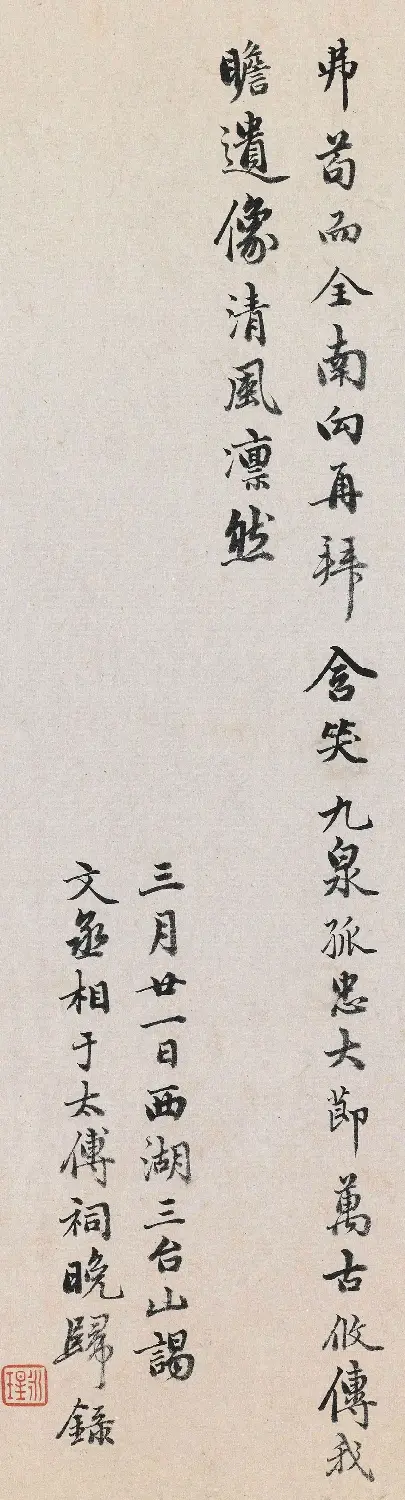 弗苟而全南向再拜含笑九泉孤忠大莭萬古攸傳我
瞻遺像清風凛然
三月廿一日西湖三台山謁
文丞相于太傅祠晚歸錄
永瑆